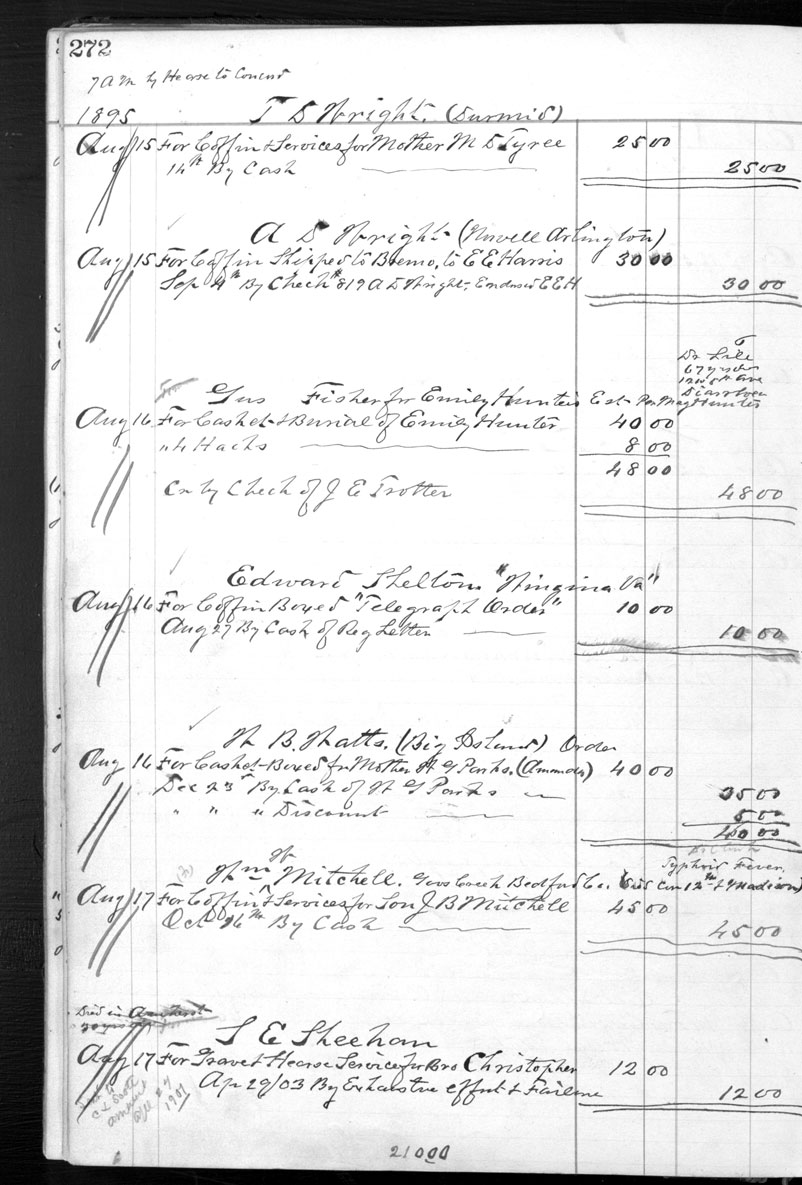 272
7 A M by Hearse to Concord
1895 T D Wright. (Durmid)
Aug 15 For Coffin & Services for Mother M D Tyree 25 00
14th By Cash 25 00
A D Wright (Norvell Arlington)
Aug 15 For Coffin Shipped to Bremo, to E E Harris 30 00
Sep 4th By Check # 819 A D Wright, Endorsed E E H 30 00
Dr Lile
67 yrs old
Diarrhoea
Gus Fisher for Emily Hunters Est Per Mag Hunter
Aug 16 For Casket & Burial of Emily Hunter 40 00
" 4 Hacks 8 00
48 00
Cr by Check of J E Trotter 48 00
Edward Shelton "Wingina Va"
Aug 16 For Coffin Boxed "Telegraph Order" 10 00
Aug 27 By Cash of Reg Letter 10 00
W B Watts. (Big Island) Order
Aug 16 For Casket Boxed for Mother W G Parks. 40 00
Dec 23 By Cash of W G Parks 35 00
" " " Discount 5 00
40 00
Typhoid Fever
Wm W Mitchell. Goos Creek Bedford Co. 12th & Madison)
Aug 17 For Coffin & Services for Son J B Mitchell 45 00
Oct 26th By Cash 45 00
Died in Amherst
S E Sheehan
Aug 17 For Grave & Hearse Services for Bro Christopher 12 00
Ap 29/03 By Exhaustive effort & Failure 12 00
1901
210 00